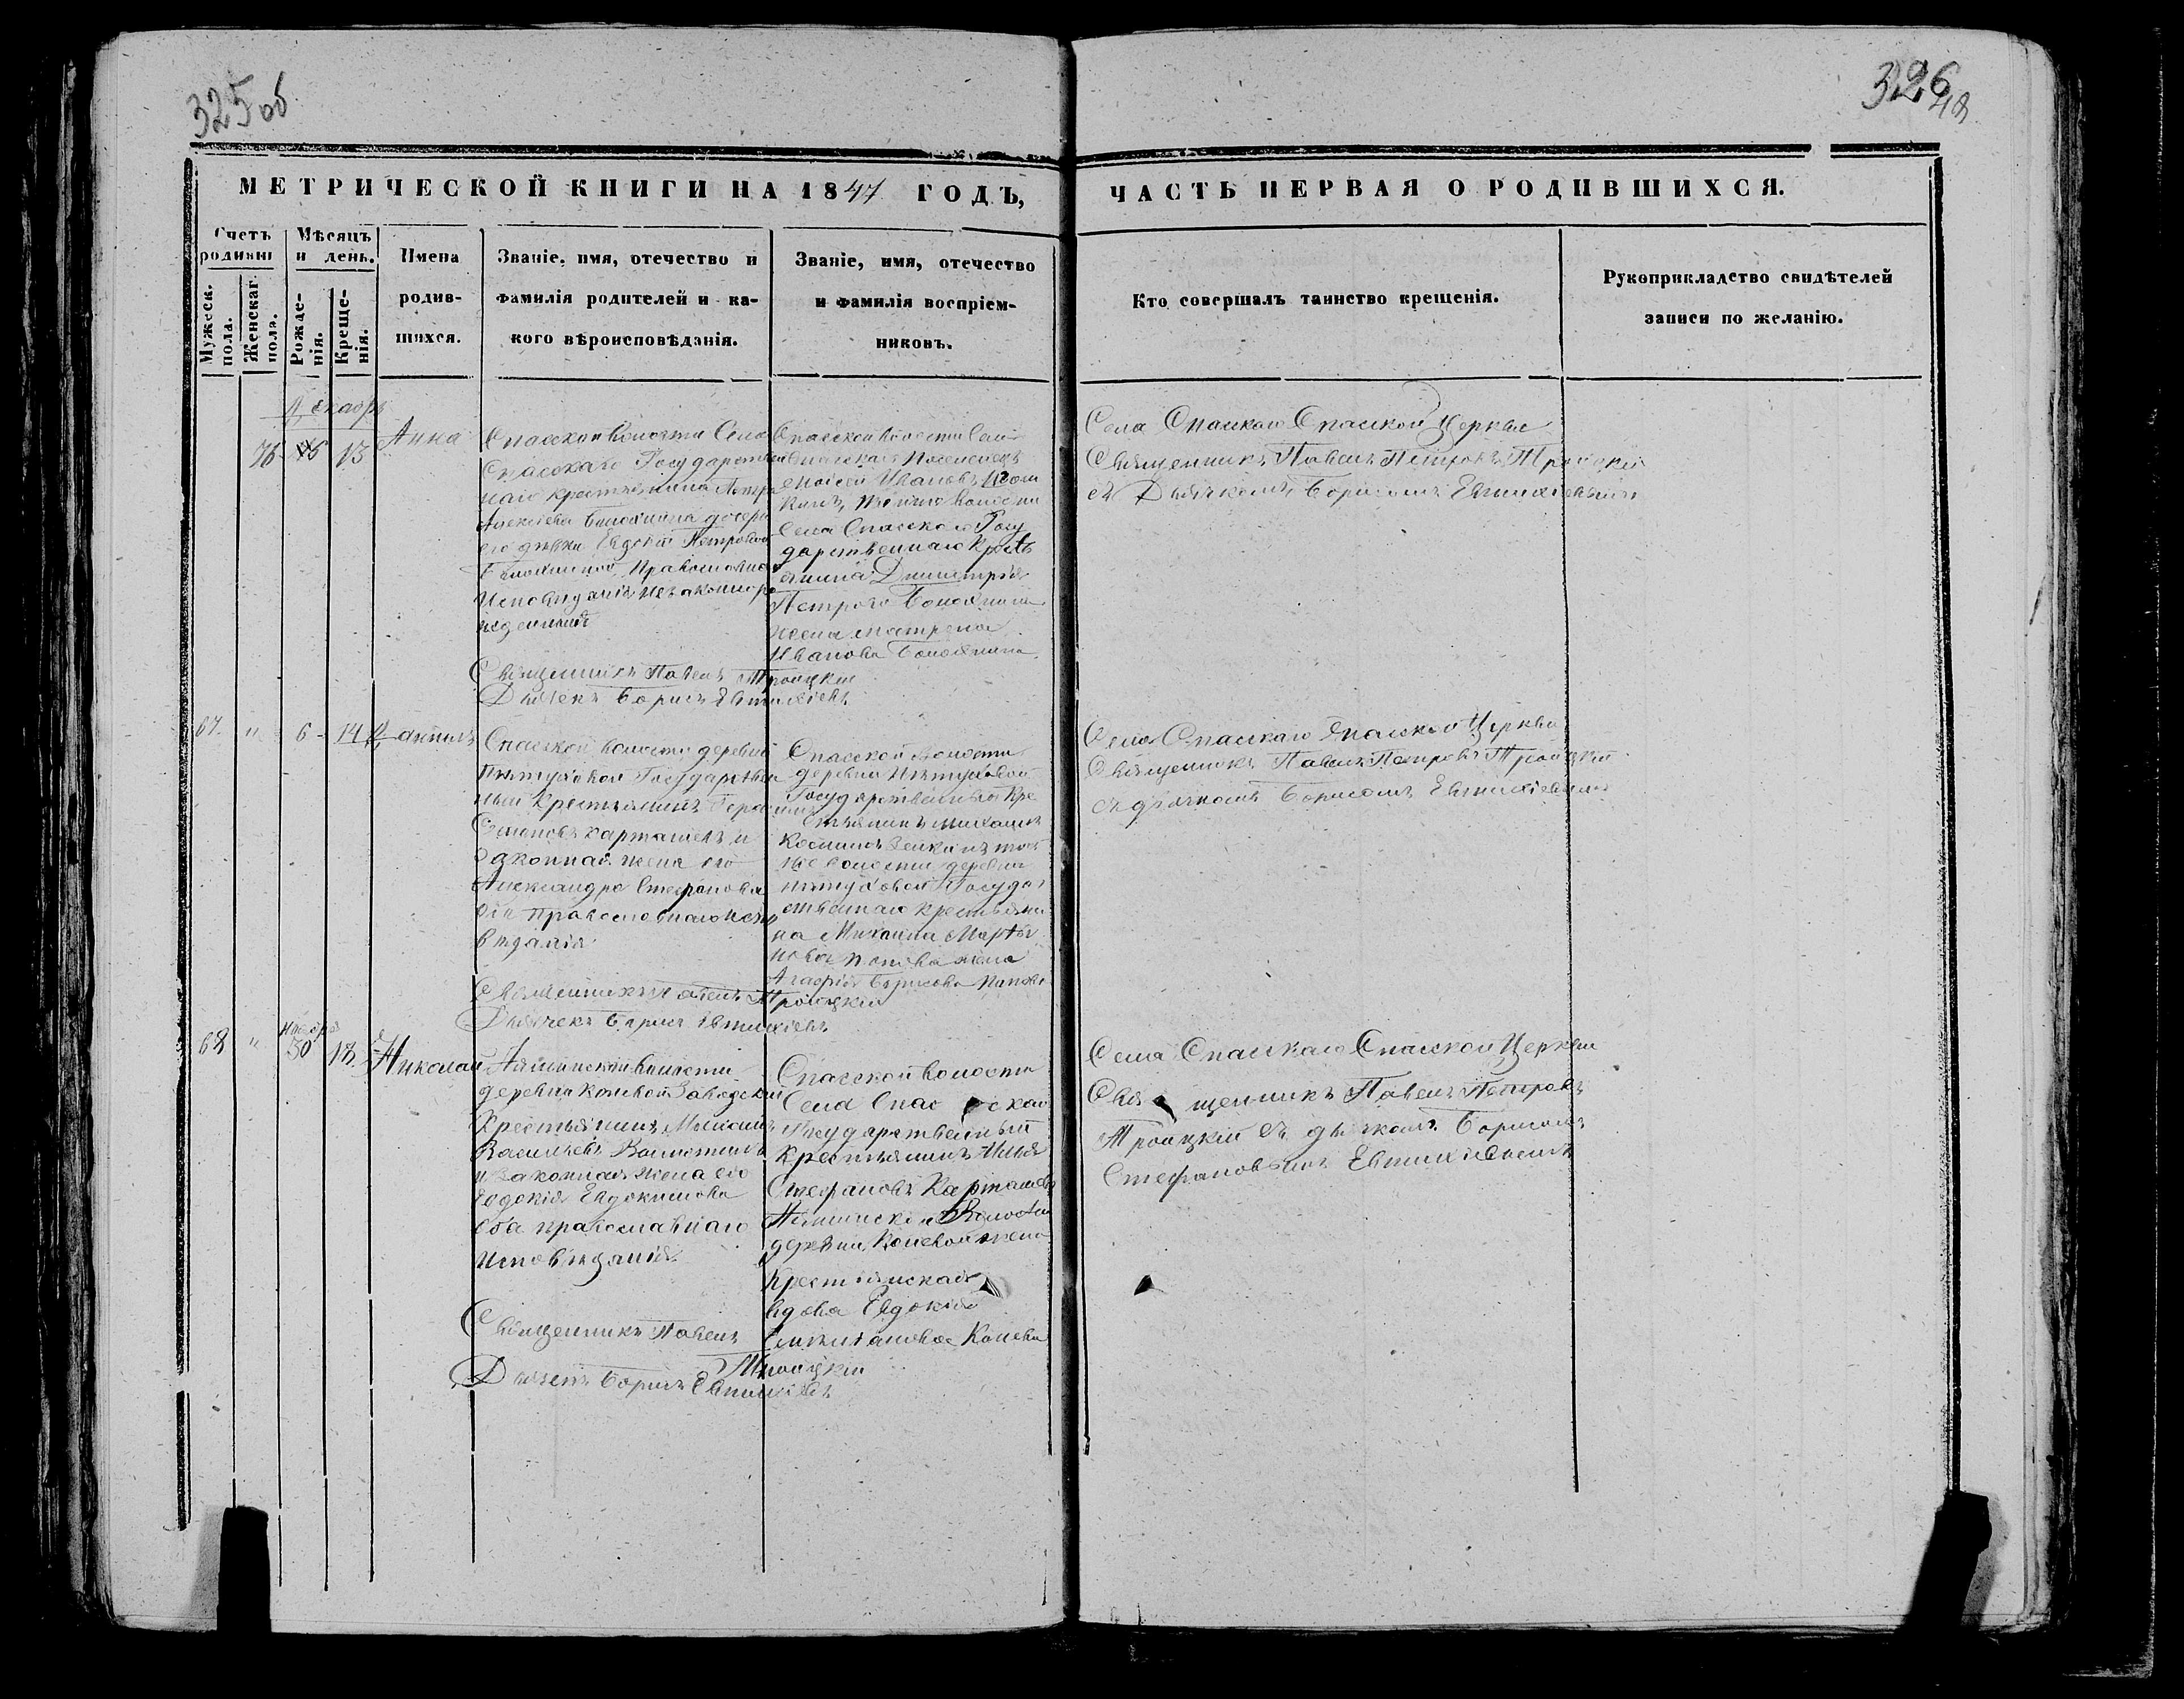 325 об
326
48
МЕТРИЧЕСКОЙ КНИГИ НА 1847 ГОДЪ,
ЧАСТЬ ПЕРВАЯ О РОДИВШИХСЯ.
Счетъ родивш
Мужеск. пола.
Женскаг. пола.
Мѣсяцъ и день.
Рожде-
нія.
Креще-
нія.
Имена
родив-
шихся.
Званіе, имя, отечество и
фамилія родителей и ка-
кого вѣроисповѣданія.
Званіе, имя, отечество
и фамилія воспріем-
никовъ.
Кто совершалъ таинство крещенія.
Рукоприкладство свидѣтелей
записи по желанію.
Декабрь
76
13
Анна
Спасской Волости Села
Спасскаго Государствен
наго крестьянина Петра
Алексѣева дочери
его дѣвки Евдокіи Петровой
Православнаго
Исповѣданія незаконноро
жденная
Священникъ Павелъ Троицкій
Дьячекъ Борисъ Евтихіевъ
Спасской Волости Села
Спасскаго Поселенецъ
Моисей Ивановъ
Волости
Села Спасскаго Госу
дарственнаго Кресть
янина Димитрія
Петрова
жена Матрена
Иванова
Села Спаскаго Спаской Церкви
Священникъ Павелъ Петровъ Троицкій
съ Дьячкомъ Борисомъ Евтихіевымъ
67 " 6 14 Даніилъ
Спасской волости деревни
Пѣтуховой Государствен
ный Крестьянинъ
Семеновъ Карташевъ и
Законная жена его
Александра Стефанова
оба православнаго испо
вѣданія
Священникъ Павелъ Троицкій
Дьячекъ Борисъ Евтихіевъ
Спасской волости
деревни Пѣтуховой
Государственный Кре
стьянинъ Михаилъ
Косминъ той
же волости деревни
Пѣтуховой Государ
ственнаго крестьяни
на Михаила Марты
нова Попова жена
Агафія Борисова Попова
Села Спаскаго Спаской Церкви
Священникъ Павелъ Петровъ Троицкій
съ дьячкомъ Борисомъ Евтихіевымъ
68 "
Ноября
30 18 Николай
волости
деревни Коневой Заводской
Крестьянинъ Михаилъ
Васильевъ
и законная жена его
Евдокія Евдокимова
оба православнаго
Исповѣданія
Священникъ Павелъ
Троицкій
Дьячекъ Борисъ Евтихіевъ
Спасской Волости
Села Спасскаго
Государственный
Крестьянинъ Илья
Стефановъ Карташевъ
Волости
деревни Коневой
Крестьянская
вдова Евдокія
Конева
Села Спаскаго Спасской Церкви
Священникъ Павелъ Петровъ
Троицкій съ дьячкомъ Борисомъ
Стефановымъ Евтихіевымъ